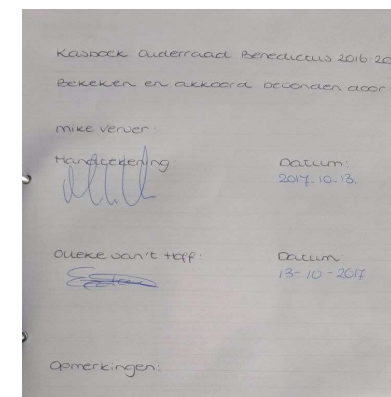 Kasboek Ouderraad Benedictus 2016 20
Bekeken en akkoord bevonden door
Mike Verver:
Handtekening: Datum:
2017-10-13.
Olleke van't Hoff: Datum
13-10-2017
Opmerkingen: